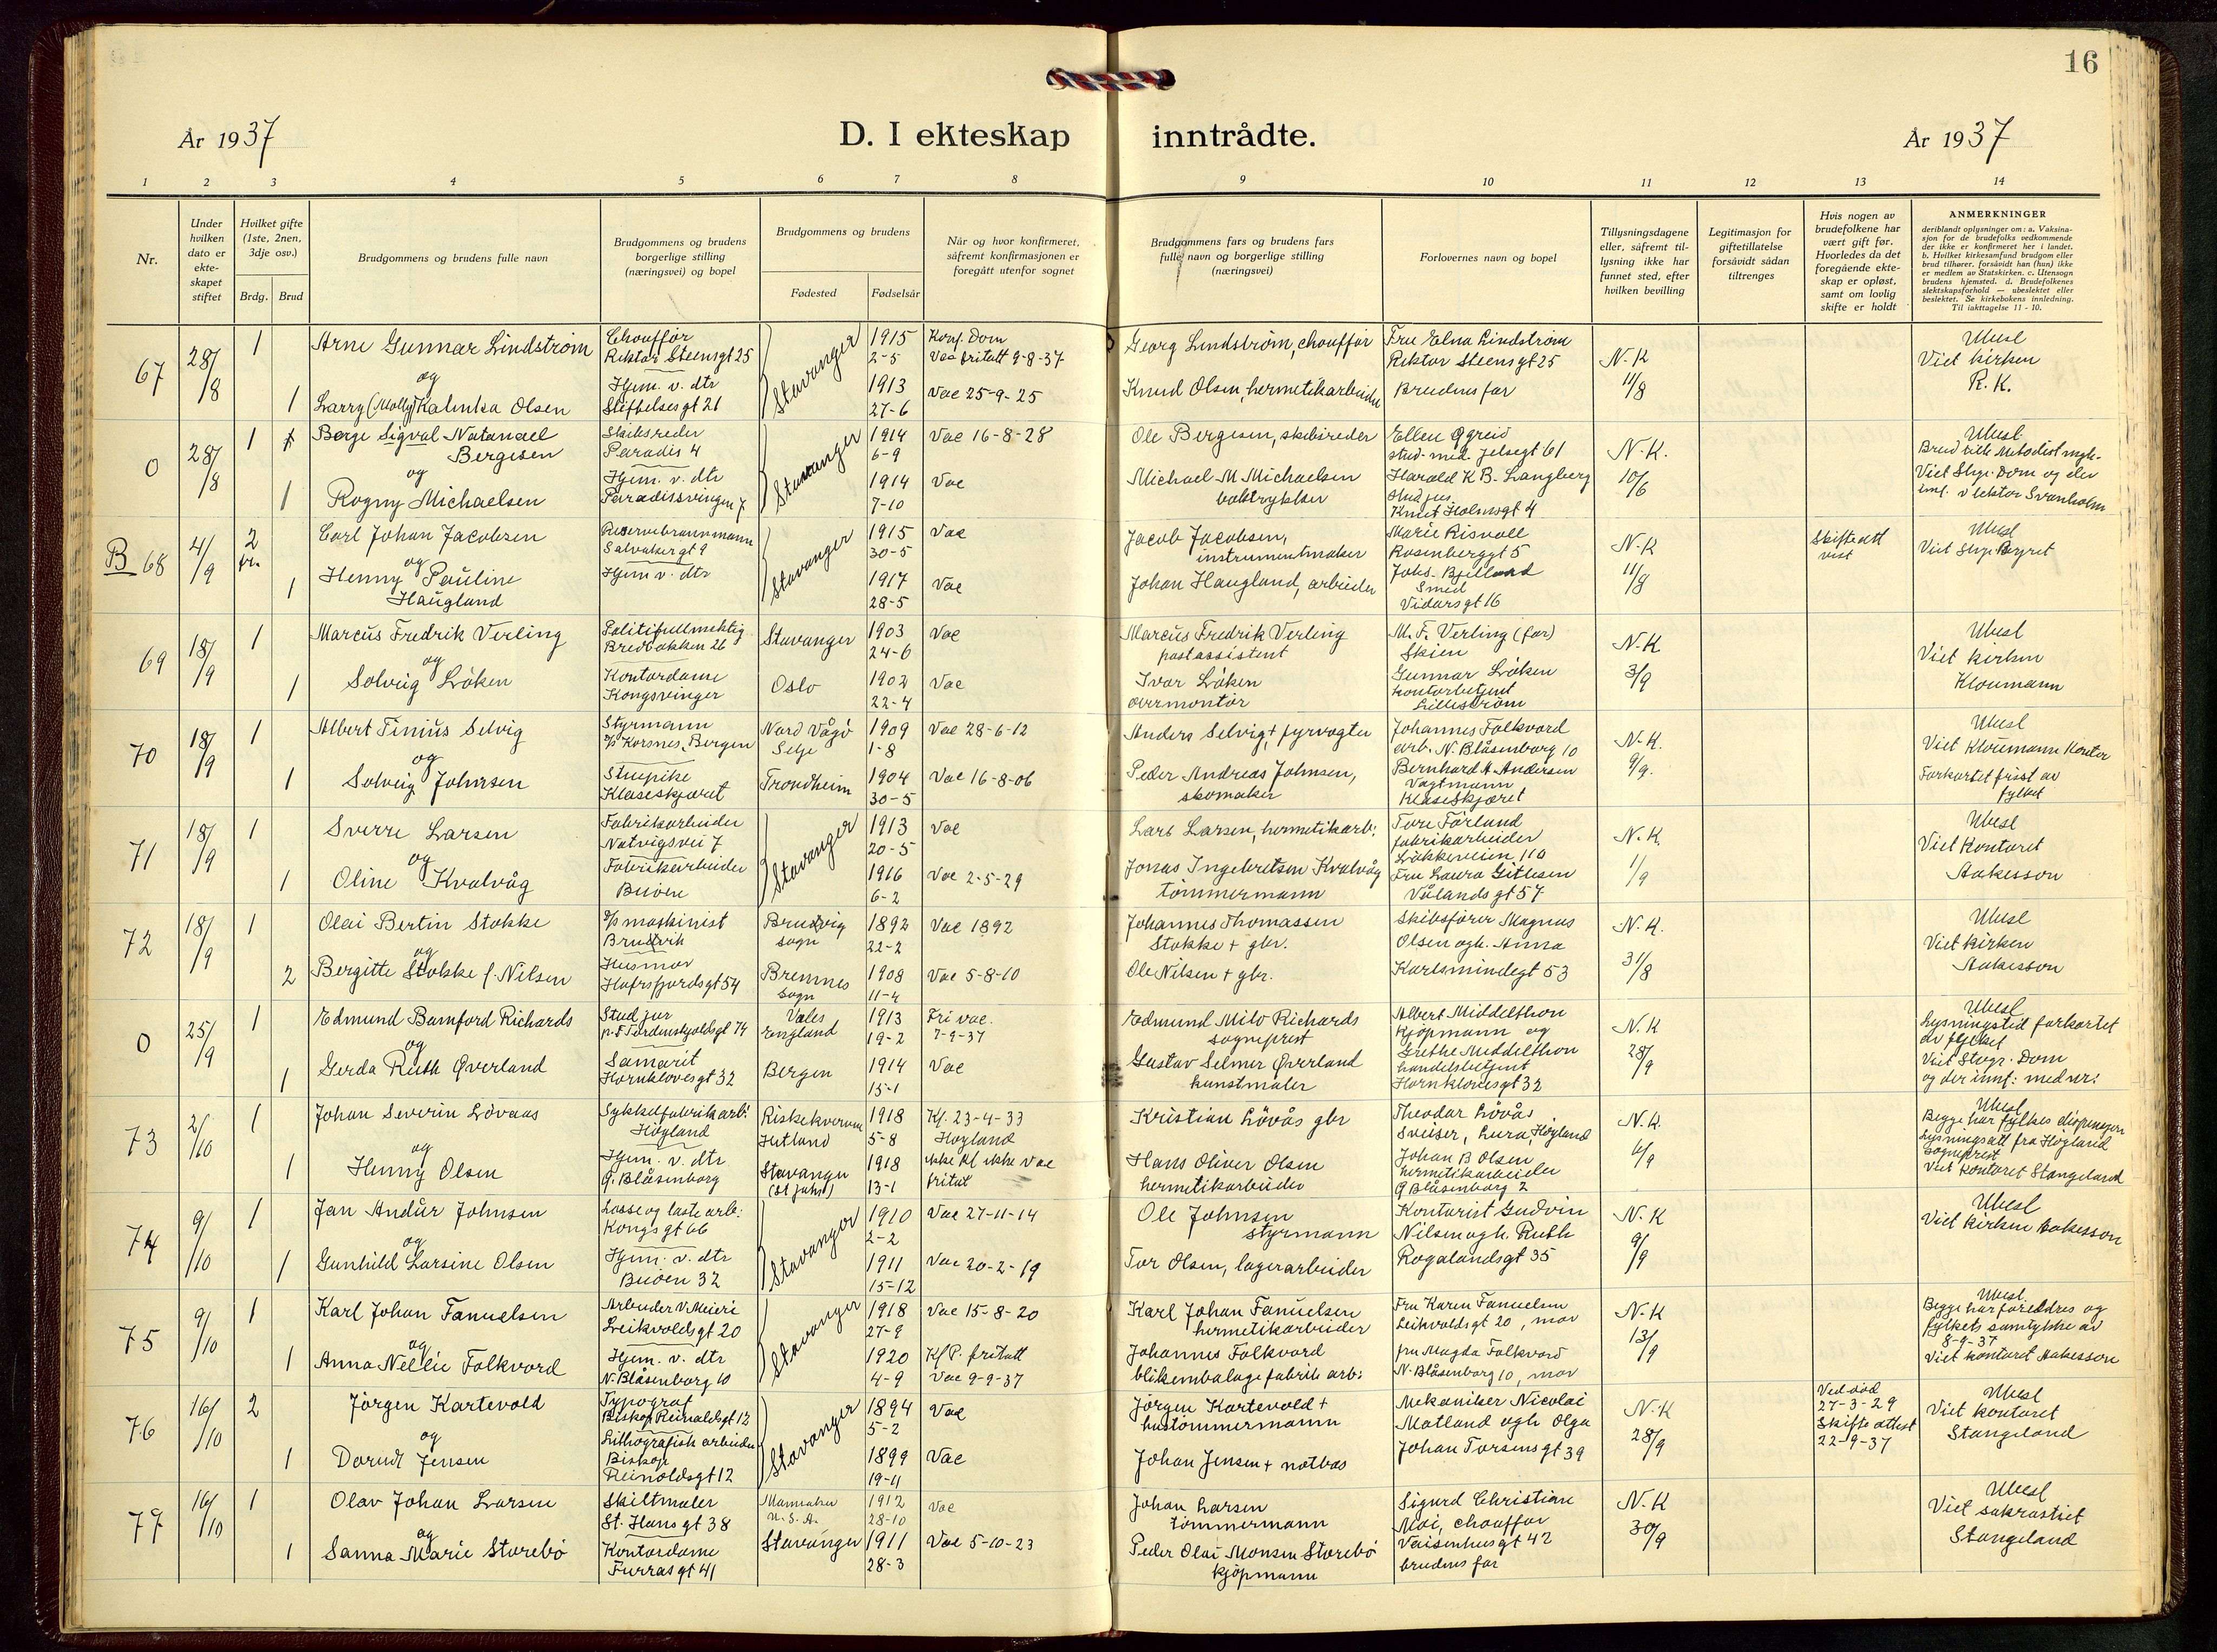 16
År 1937
D. I ekteskap inntrådte.
År 1937
1 2 3 4 5 6 7 8 9 10 11 12 13 14
Nr.
Under hvilken dato er ekte-skapet stiftet
Hvilket gifte (1ste, 2nen, 3dje osv.)
Brdg. Brud
Brudgommens og brudens fulle navn
Brudgommens og brudens borgerlige stilling (næringsvei) og bopel
Brudgommens og brudens
Fødested Fødselsår
Når og hvor konfirmeret, såfremt konfirmasjonen er foregått utenfor sognet
Brudgommens fars og brudens fars fulle navn og borgerlige stilling (næringsvei)
Forlovernes navn og bopel
Tillysningsdagene eller, såfremt til-lysning ikke har funnet sted, efter hvilken bevilling
Legitimasjon for giftetillatelse forsåvidt sådan tiltrenges
Hvis nogen av brudefolkene har vært gift før. Hvorledes da det foregående ekte-skap er opløst, samt om lovlig skifte er holdt
ANMERKNINGER
deriblandt oplysninger om: a. Vaksina-sjon for de brudefolks vedkommende der ikke er konfirmeret her i landet. b. Hvilket kirkesamfund brudgom eller brud tilhører, forsåvidt han (hun) ikke er medlem av Statskirken. c. Utensogn brudens hjemsted. d. Brudefolkenes slektskapsforhold — ubeslektet eller beslektet. Se kirkebokens innledning. Til iakttagelse 11 - 10.
67 28/8 1 Arne Gunnar Lindstrøm Chouffør Rektor Steensgt 25 Stavanger 1915 2-5 Konf. Dom Vac fritatt 9-8-37 Georg Lindstrøm, chouffør Fru Elna Lindstrøm Rektor Steensgt 25 N-K 11/8 Ubesl Viet kirken R. K.
og
1 Larry (Molly) Kalinka Olsen Hjem. v. dtr Stiftelsesgt 21 1913 27-6 Vac 25-9-25 Knud Olsen, hermetikarbeider Brudens far
0 28/8 1 Berge Sigval Natanael Bergesen Skibsreder Paradis 4 Stavanger 1914 6-9 Vac 16-8-28 Ole Bergesen, skibsreder Ellen Qgreid stud. med. Jelsegt 61 N-K. 10/6 Ubesl
og
1 Rogny Michaelsen Hjem. v. dtr Paradissvingen 7 1914 7-10 Vac Michael M Michaelsen boktrykker Harald K B. Langberg stud jus. Knut Holmsgt 4 Viet Stvgr. Dom og der innf. v lektor Svanholm
B 68 4/9 2 Carl Johan Jacobsen Reservebrannmann Salvatergt 9 Stavanger 1915 30-5 Vac Jacob Jacobsen, instrumentmaker Marie Risvoll Rosenberggt 5 N-K 11/8 Skifteatt vist Ubesl
og
1 Henny Pauline Haugland Hjem v. dtr 1917 28-5 Vac Johan Haugland, arbeider Johs. Bjelland Smed Vidarsgt 16
69 18/9 1 Marcus Fredrik Verling Politifullmektig Bredbakken 26 Stavanger 1903 24-6 Vac Marcus Fredrik Verling postassistent M. F. Verling (far) Skien N-K. 3/9 Ubesl Viet kirken Kloumann
og
1 Solveig Løken Kontordame Kongsvinger Oslo 1902 22-4 Vac Ivar Løken overmontør Gunnar Løken kontorbetjent Lillestrøm
70 18/9 1 Albert Tinius Selvig Styrmann Korsnes, Bergen Nord Vågø Selje 1909 1-8 Vac 28-6-12 Anders Selvig + fyrvogter Johannes Folkvord arb. N. Blåsenborg 10 N-K. 9/9. Ubesl Viet Kloumann Kontor Forkortet frist av fylket
og
1 Solveig Johnsen Stuepike Klaseskjæret Trondheim 1904 30-5 Vac 16-8-06 Peder Andreas Johnsen, skomaker Bernhard A Andersen Vagtmann Klaseskjæret
71 18/9 1 Sverre Larsen Fabrikarbeider Natvigsvei 7 Stavanger 1913 20-5 Vac Lars Larsen, hermetikarb: Tore Førland fabrikarbeider Løkkeveien 110 N.K. 1/9 Ubesl Viet Kontoret Aakesson
og
1 Oline Kvalvåg Fabrikarbeider Buøen 1916 6-2 Vac 2-5-29 Jonas Ingebretsen Kvalvåg tømmermann Fru Laura Gitlesen Vålandsgt 57
72 18/9 1 Olai Bertin Stokke maskinist Brudvik Brudvig sogn 1892 22-2 Vac 1892 Johannes Thomassen Stokke + gbr. Skibsfører Magnus Olsen og h. Anna Karlsmindegt 53 N-K. 31/8 Ubesl Viet kirken Aakesson
og
2 Bergitte Stokke f. Nilsen Husmor Hafrsfjordsgt 54 Bremnes sogn 1908 11-4 Vac 5-8-10 Ole Nilsen + gbr.
0 25/9 1 Edmund Bamford Richards Stud jur p.t. Tordenskjoldsgt 74 Wales England 1913 19-2 Fri vac. 7-9-37 Edmund Milo Richards sogneprest Albert Middelthon kjøpmann og N.K 28/9 Ubesl Lysningstid forkortet av fylket Viet Stvgr. Dom og der innf: med nr:
og
1 Gerda Ruth Øverland Samarit Hornklovesgt 32 Bergen 1914 15-1 Vac Gustav Selmer Øverland kunstmaler Grethe Middelthon handelsbetjent Hornklovesgt 32
73 2/10 1 Johan Severin Løvaas Sykkelfabrikarb: Høyland Riskekverven Hetland 1918 5-8 Kf. 23-4-33 Høyland Kristian Løvås gbr Theodor Løvås Sveiser, Lura, Høyland N.K. 6/9 Ubesl Begge har fylkes dispensasjon Lysningsatt fra Høyland sogneprest Viet kontoret Stangeland
og
1 Henny Olsen Hjem. v. dtr G. Blåsenborg Stavanger (St Johs) 1918 13-1 ikke kf ikke vac fritat Hans Oliver Olsen hermetikarbeider Johan B Olsen hermetikarbeider G Blåsenborg 2
74 9/10 1 Jan Andur Johnsen Losse og laste arb: Kongsgt 66 Stavanger 1910 2-2 Vac 27-11-14 Ole Johnsen styrmann Kontorist Gudvin Nilsen og h. Ruth Rogalandsgt 35 N-K 9/9 Ubesl Viet kirken Aakesson
og
1 Gunhild Larsine Olsen Hjem. v. dtr Buøen 32 1911 15-12 Vac 20-2-19 Tor Olsen, lagerarbeider
75 9/10 1 Karl Johan Fanuelsen Arbeider V Meieri Leikvoldsgt 20 Stavanger 1918 27-9 Vac 15-8-20 Karl Johan Fanuelsen hermetikarbeider Fru Karen Fanuelsen Leikvoldsgt 20, mor N-K 13/9 Ubesl. Begge har foreldres og fylkets samtykke av 8-9-37 Viet kontoret Aakesson
og
1 Anna Nellie Folkvord Hjem. v. dtr N. Blåsenborg 10 1920 4-9 Kf P. fritatt Vac 9-9-37 Johannes Folkvord blikembalagefabrik arb: fru Magda Folkvord N. Blåsenborg 10, mor
76 16/10 2 Jörgen Kartevold Typograf Biskop Reinaldsgt 12 Stavanger 1894 5-2 Vac Jörgen Kartevold + hustømmermann Mekaniker Nicolai Matland og h Olga Johan Torsensgt 39 N-K 28/9 Ved død 27-3-29 Skifte attest 22-9-37 Ubesl Viet kontoret Stangeland
og
1 Jensen Lithografisk arbeider Biskop Reinoldsgt 12 1899 19-11 Vac Johan Jensen + notbas
77 16/10 1 Olav Johan Larsen Skiltmaler St. Hansgt 38 U.S.A. 1912 28-10 Vac Johan Larsen tømmermann Sigurd Christian Moi, chouffør Vaisenhusgt 42 N-K 30/9 Ubesl Viet sakrastiet Stangeland
og
1 Sanna Marie Storebø Kontordame Furrasgt 41 Stavanger 1911 28-3 Vac 5-10-23 Peder Olai Monsen Storebø kjøpmann brudens far